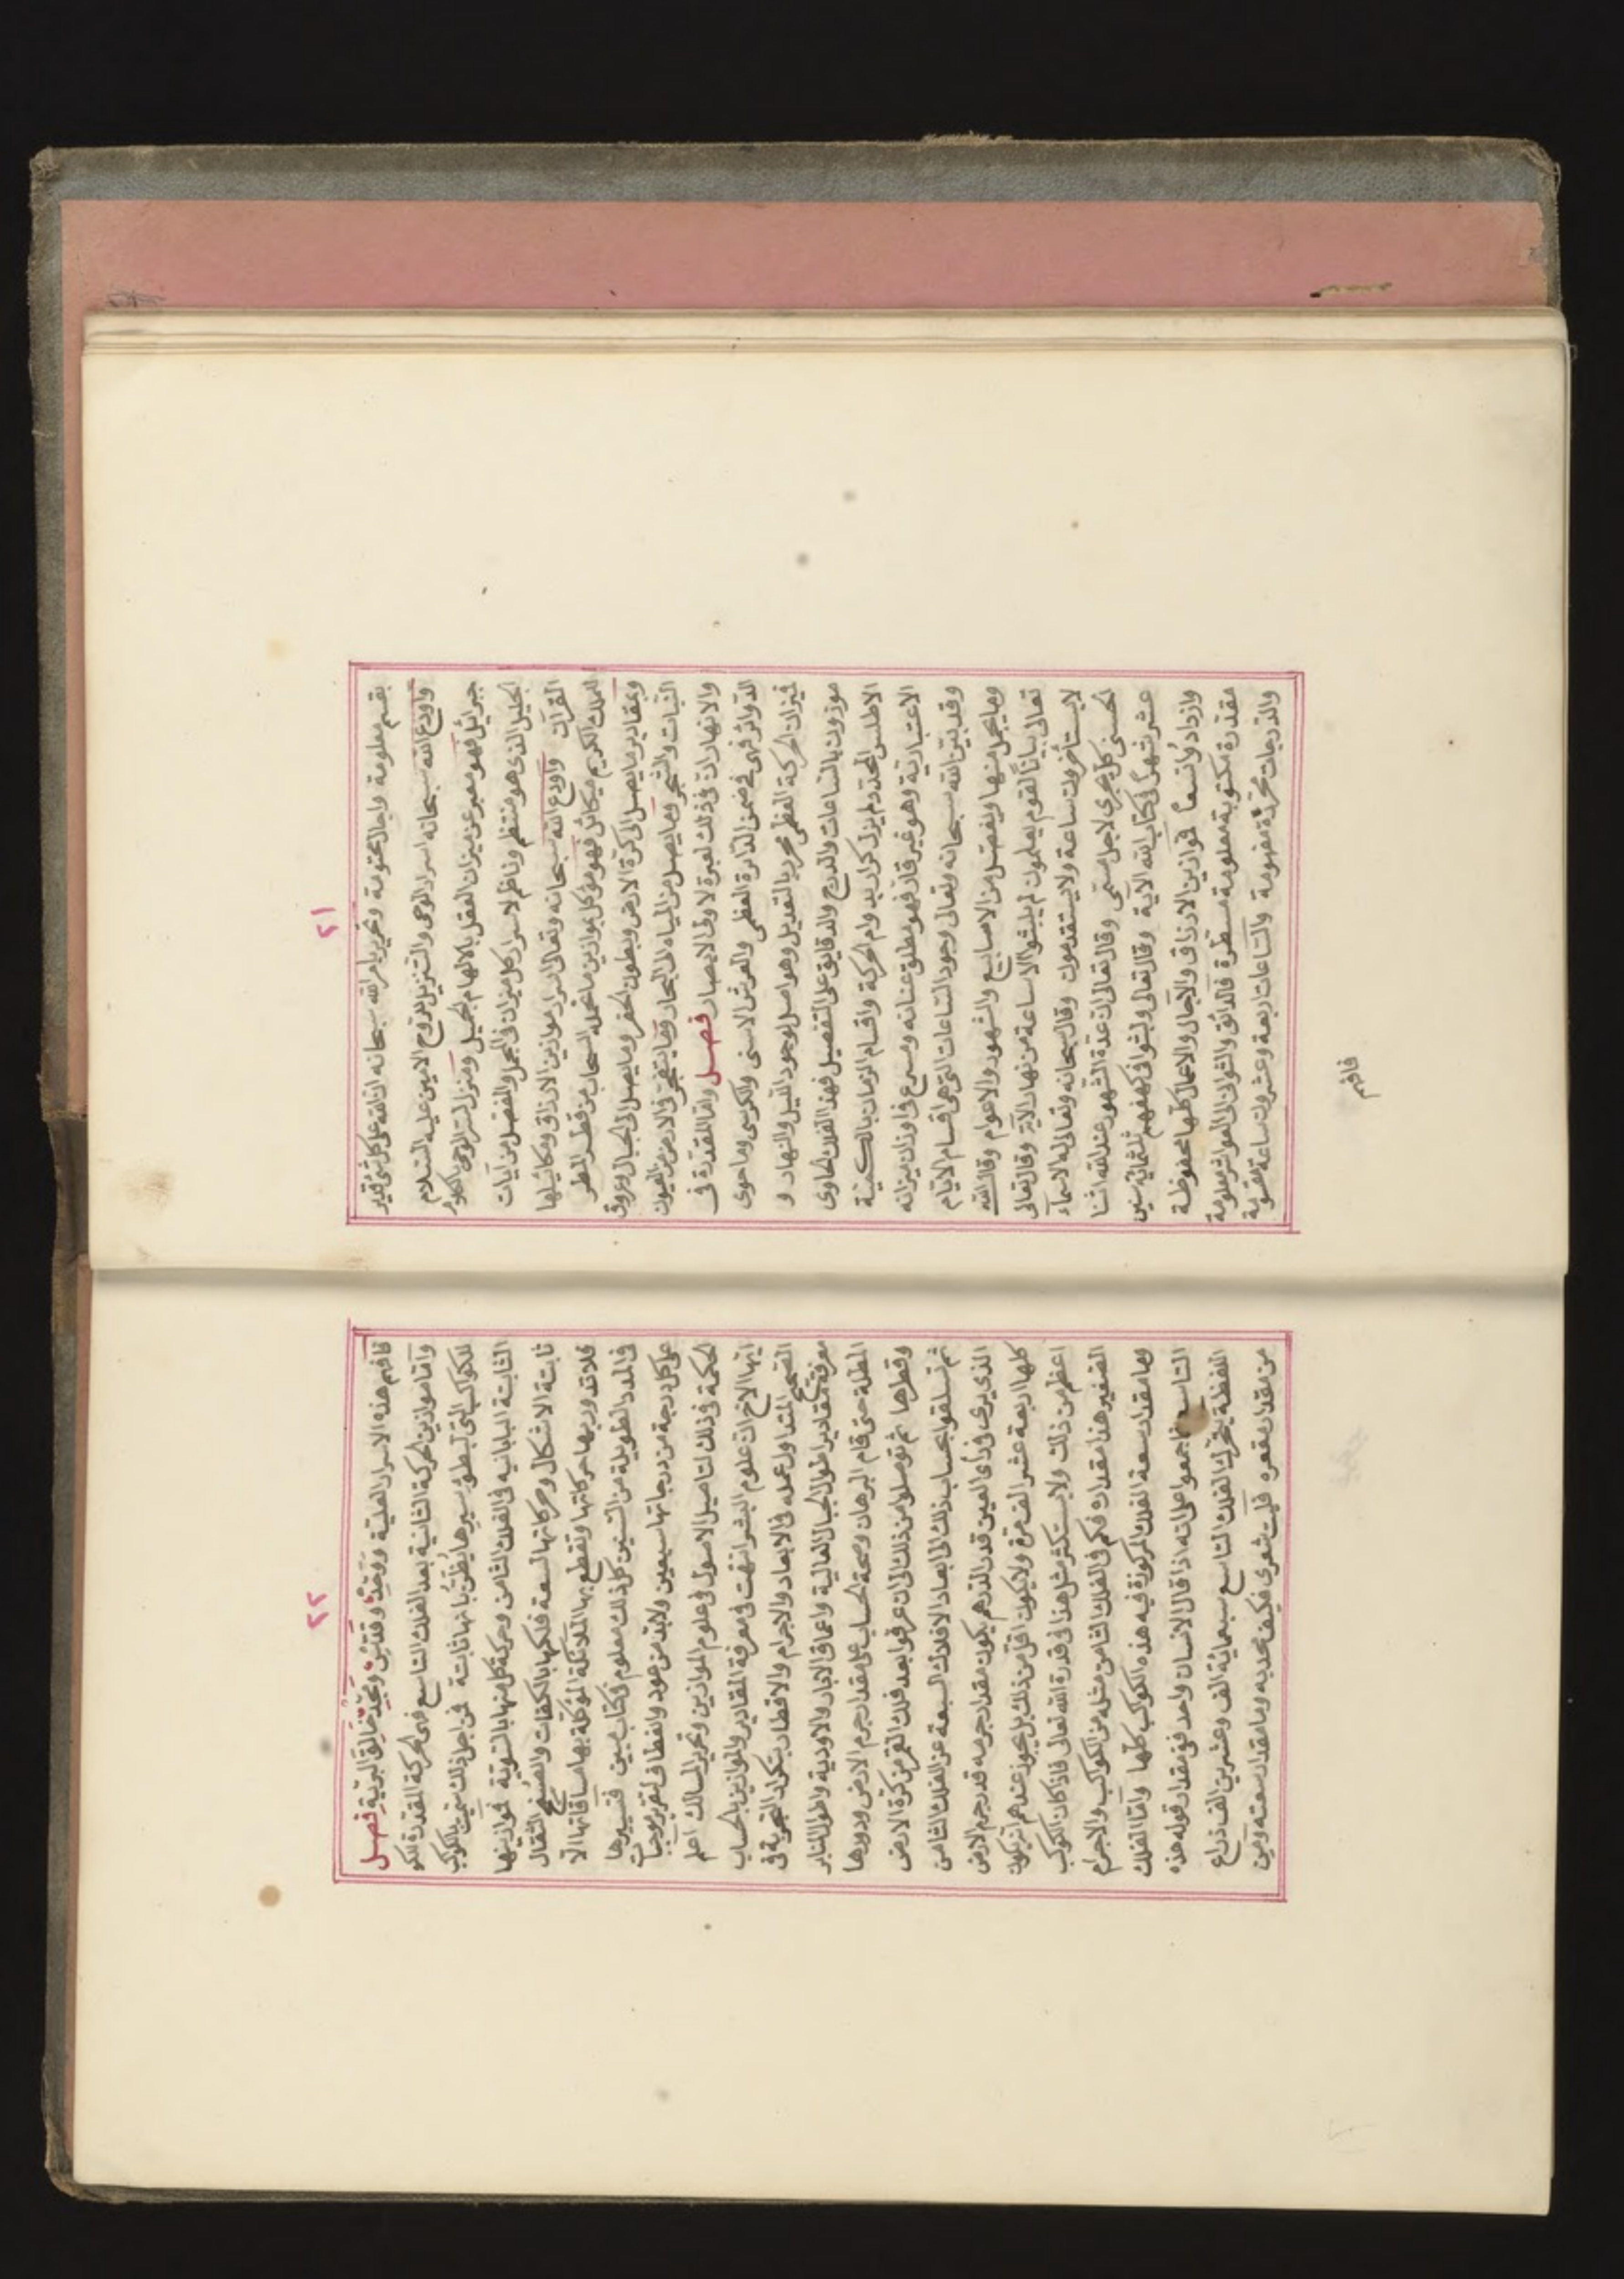 ٢١
بقسم معلومة واجال محتومة وتحرير بامر الله سبحانه ان الله على كل شئ قدير
واودع الله سبحانه اسرار الوحى والتنزيل للروح الامين عليه السلام
جبرائيل فهو معبر عن ميزان العقل بالالهام الجميل ومنزل لستر الوحى بالكلام
الجليل الذى هو منتظم وناظم لاسرار كل ميزان فى المجمل والمفصل من ايات
القرآن واودع الله سبحانه وتعالى اسرار موازين الارزاق ومكائيلها
للملك الكريم ميكائل فهو موكل بموازين ما تحمله السحاب من قطر المطر
وبمقادير ما يصل الى كرة الارض وبطون الحفر وما يصل الى الجبال وعروق
النبات والشجر وما يصل من المياه الى البحار وما ينفجر فى الارض من العيون
والانهار ان فى ذلك لعبرة لاولى الابصار فصل واما المقدرة فى
الدوائر فهى فى ضمن الدائرة العظمى والعرش الاسنى والكرسى وما حوى
فميزان الحركة العظمى محرر بالتعديل وهو اصل لوجود الليل والنهار و
موزون بالساعات والدرج والدقايق على التفصيل فهذا الفلك الحاوى
الاطلس المحدد لم يزل كرار بدوام الحركة واقسام الزمان بالسكينة
الاعتبارية وهو غير قار فهو مطلق عنانه ومسرع فى اوزان ميزانه
وقد بين الله سبحانه وتعالى وجود الساعات التى هى اقسام الايام
وما يجمل منها ويفصل من الاسابيع والشهور والاعوام وقال الله
تعالى بيانا لقوم يعلمون لم يلبثوا الا ساعة من نهار الآية وقال تعالى
لا يستأخرون ساعة ولا يستقدمون وقال سبحانه وتعالى له الاسماء
الحسنى كل يجرى لاجل مسمى وقال تعالى ان عدة الشهور عند الله اثنا
عشر شهرا فى كتاب الله الآية وقال تعالى ولبثوا فى كهفهم ثلثمائة سنين
وازدادوا تسعا فموازين الارزاق والآجال والاعمال كلها محفوظة
مقدرة مكتوبة معلومة مسطرة فالدقائق والثوانى الى العواشر معلومة
والدرجات محررة مفهومة والساعات اربعة وعشرون ساعة مقسومة
فافهم
٢٢
فافهم هذه الاسرار العلية ووحد وقدس ومجد خالق البرية فصل
واما موازين الحركة الثانية بعد الفلك التاسع فهى الحركة المقدرة للكو
للكواكب التى لبطؤ سيرها يظن بانها ثابتة فمن اجل ذلك سميت بالكواكب
الثابتة البابانيه فى الفلك الثامن وحركة كل منها بالسوية فموازينها
ثابتة الاشكال وحركاتها لسعة فلكها بالكفات والصنج الثقال
فلا تدور بها حركاتها وتقطع بها الملائكة الموكلة بها مسافاتها الا
فى المدد الطويلة من السنين كل ذلك معلوم فى كتاب مبين فتسييرها
على كل درجة من درجاتها سبعين ولابد من عود وانعطاف لتقرير موجبات
الحكمة فى ذلك لتاصيل الاصول فى علوم الموازين وتحرير المسالك اعلم
ايها الاخ ان علوم البشر انتهت فى معرفة المقادير والموازين بالحساب
الصحيح المتداول عمله فى الابعاد والاجرام والاقطار بتكرار التجربة فى
معرفة مقادير اطوال الجبال العالية واعماق الابار والاودية واطوال المنابر
المطلة حتى قام البرهان وصحة الحساب على مقدار جرم الارض ودورها
وقطرها ثم توصلوا من ذلك الى ان عرفوا بعد فلك القمر من كرة الارض
ثم تسلقوا بحساب ذلك الى ابعاد الافلاك السبعة عن الفلك الثامن
الذى يرى فى رأى العين قدر الدرهم يكون مقدار جرمه قدر جرم الارض
كلها اربعة عشر الف مرة ولا يكون اقل من ذلك بل يجوز عندهم ان يكون
اعظم من ذلك ولا يستكثر مثل هذا فى قدرة الله تعالى فاذا كان الكوكب
الصغير هذا مقداره فكم فى الفلك الثامن مثله من الكواكب والاجرام
وما مقدار سعة الفلك المركوزة فيه هذه الكواكب كلها واما الفلك
التاسع فاجمعوا على انه اذا قال الانسان واحد ففى مقدار قوله هذه
اللفظة يتحرك الفلك التاسع سبعمائة الف وعشرين الف ذراع
من مقدار مقعره فليت شعرى فكيف محدبه وما مقدار سعته ومن